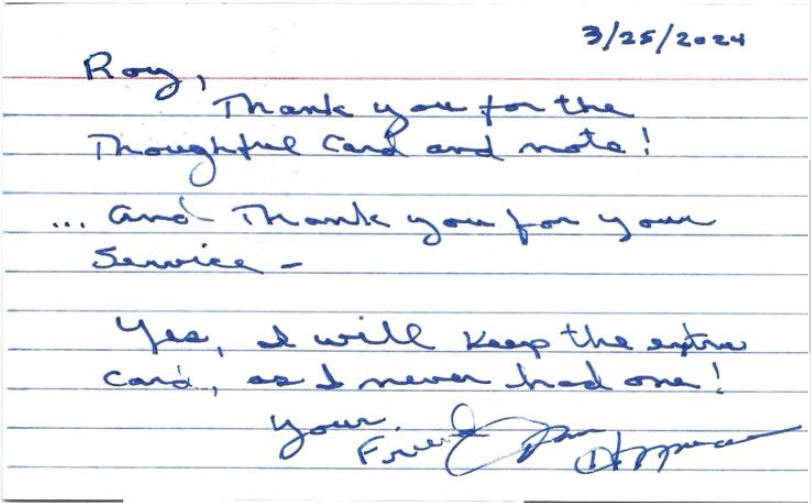 3/25/2024
Roy,
Thank you for the
Thoughtful Card and note!
... and Thank you for your
Service -
Yes, I will keep the extra
Card, as I never had one!
Your
Friend